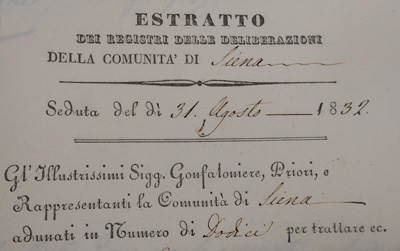 ESTRATTO
DEI REGISTRI DELLE DELIBERAZIONI
DELLA COMUNITA' DI Siena
Seduta del dì 31. Agosto 1832.
Gl'Illustrissimi Sigg. Gonfaloniere, Priori, e
Rappresentanti la Comunità di Siena
adunati in Numero di Dodici per trattare ec.